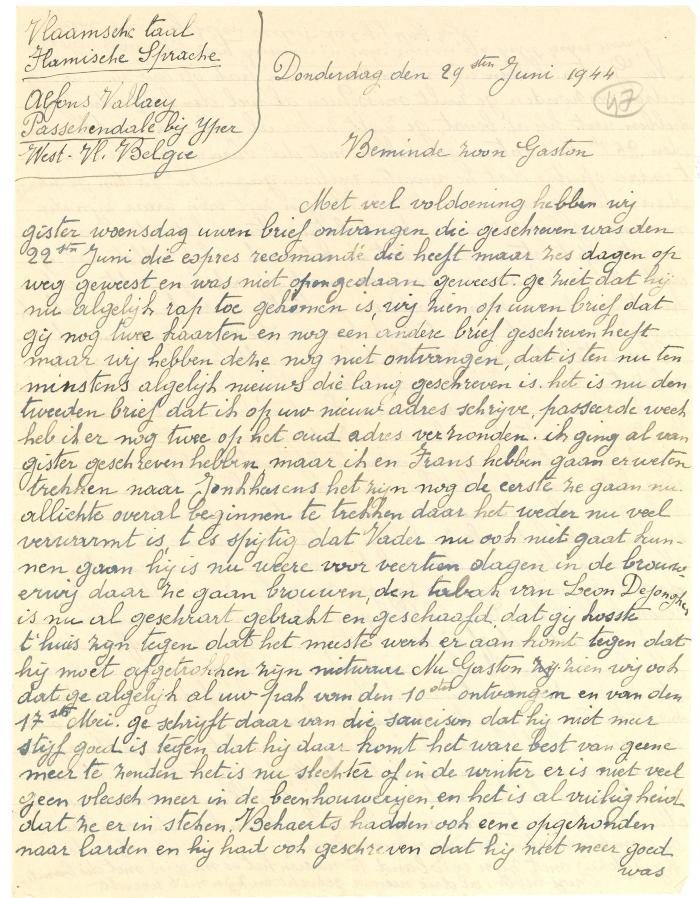 Vlaamsche taal
Flamische Sprache
Alfons Vallaey
Passchendale bij Yper
West-Vl. Belgie
Donderdag den 29 sten Juni 1944
47
Beminde zoon Gaston
Met veel voldoening hebben wij
gister woensdag uwen brief ontvangen die geschreven was den
22 sten Juni die expres recomandé die heeft maar zes dagen op
weg geweest en was niet opengedaan geweest. ge ziet dat hij
nu algelijk rap toe gekomen is, wij zien op uwen brief dat
gij nog twee kaarten en nog een andere brief geschreven heeft
maar wij hebben deze nog niet ontvangen, dat is ten nu ten
minstens algelijk nieuws die lang geschreven is. het is nu den
tweeden brief dat ik op uw nieuw adres schrijve, passeerde week
heb ik er nog twee op het oud adres verzonden. ik ging al van
gister geschreven hebben, maar ik en Frans hebben gaan erweten
trekken naar Jonkheerens het zijn nog de eerste ze gaan nu
allichte overal beginnen te trekken daar het weder nu veel
verwarmt is, t'es spijtig dat Vader nu ook niet gaat kun-
nen gaan hij is nu weere voor veertien dagen in de brouw-
erwij daar ze gaan brouwen, den tabak van Leon Dejonghe
is nu al geschrart gebrakt en geschaafd, dat gij koste
t'huis zijn tegen dat het meeste werk er aan komt tegen dat
hij moet afgetrokken zijn Nu Gaston zien wij ook
dat ge algelijk al uw pak van den 10 den ontvangen en van den
17 sten Mei. ge schrijft daar van die saucison dat hij niet meer
stijf goed is tegen dat hij daar komt het ware best van geene
meer te zenden het is nu slechter of in de winter er is niet veel
geen vleesch meer in de beenhouwerijen, en het is al vuiligheid
dat ze er in steken. Bekaerts hadden ook eene opgezonden
naar larden en hij had ook geschreven dat hij niet meer goed
was